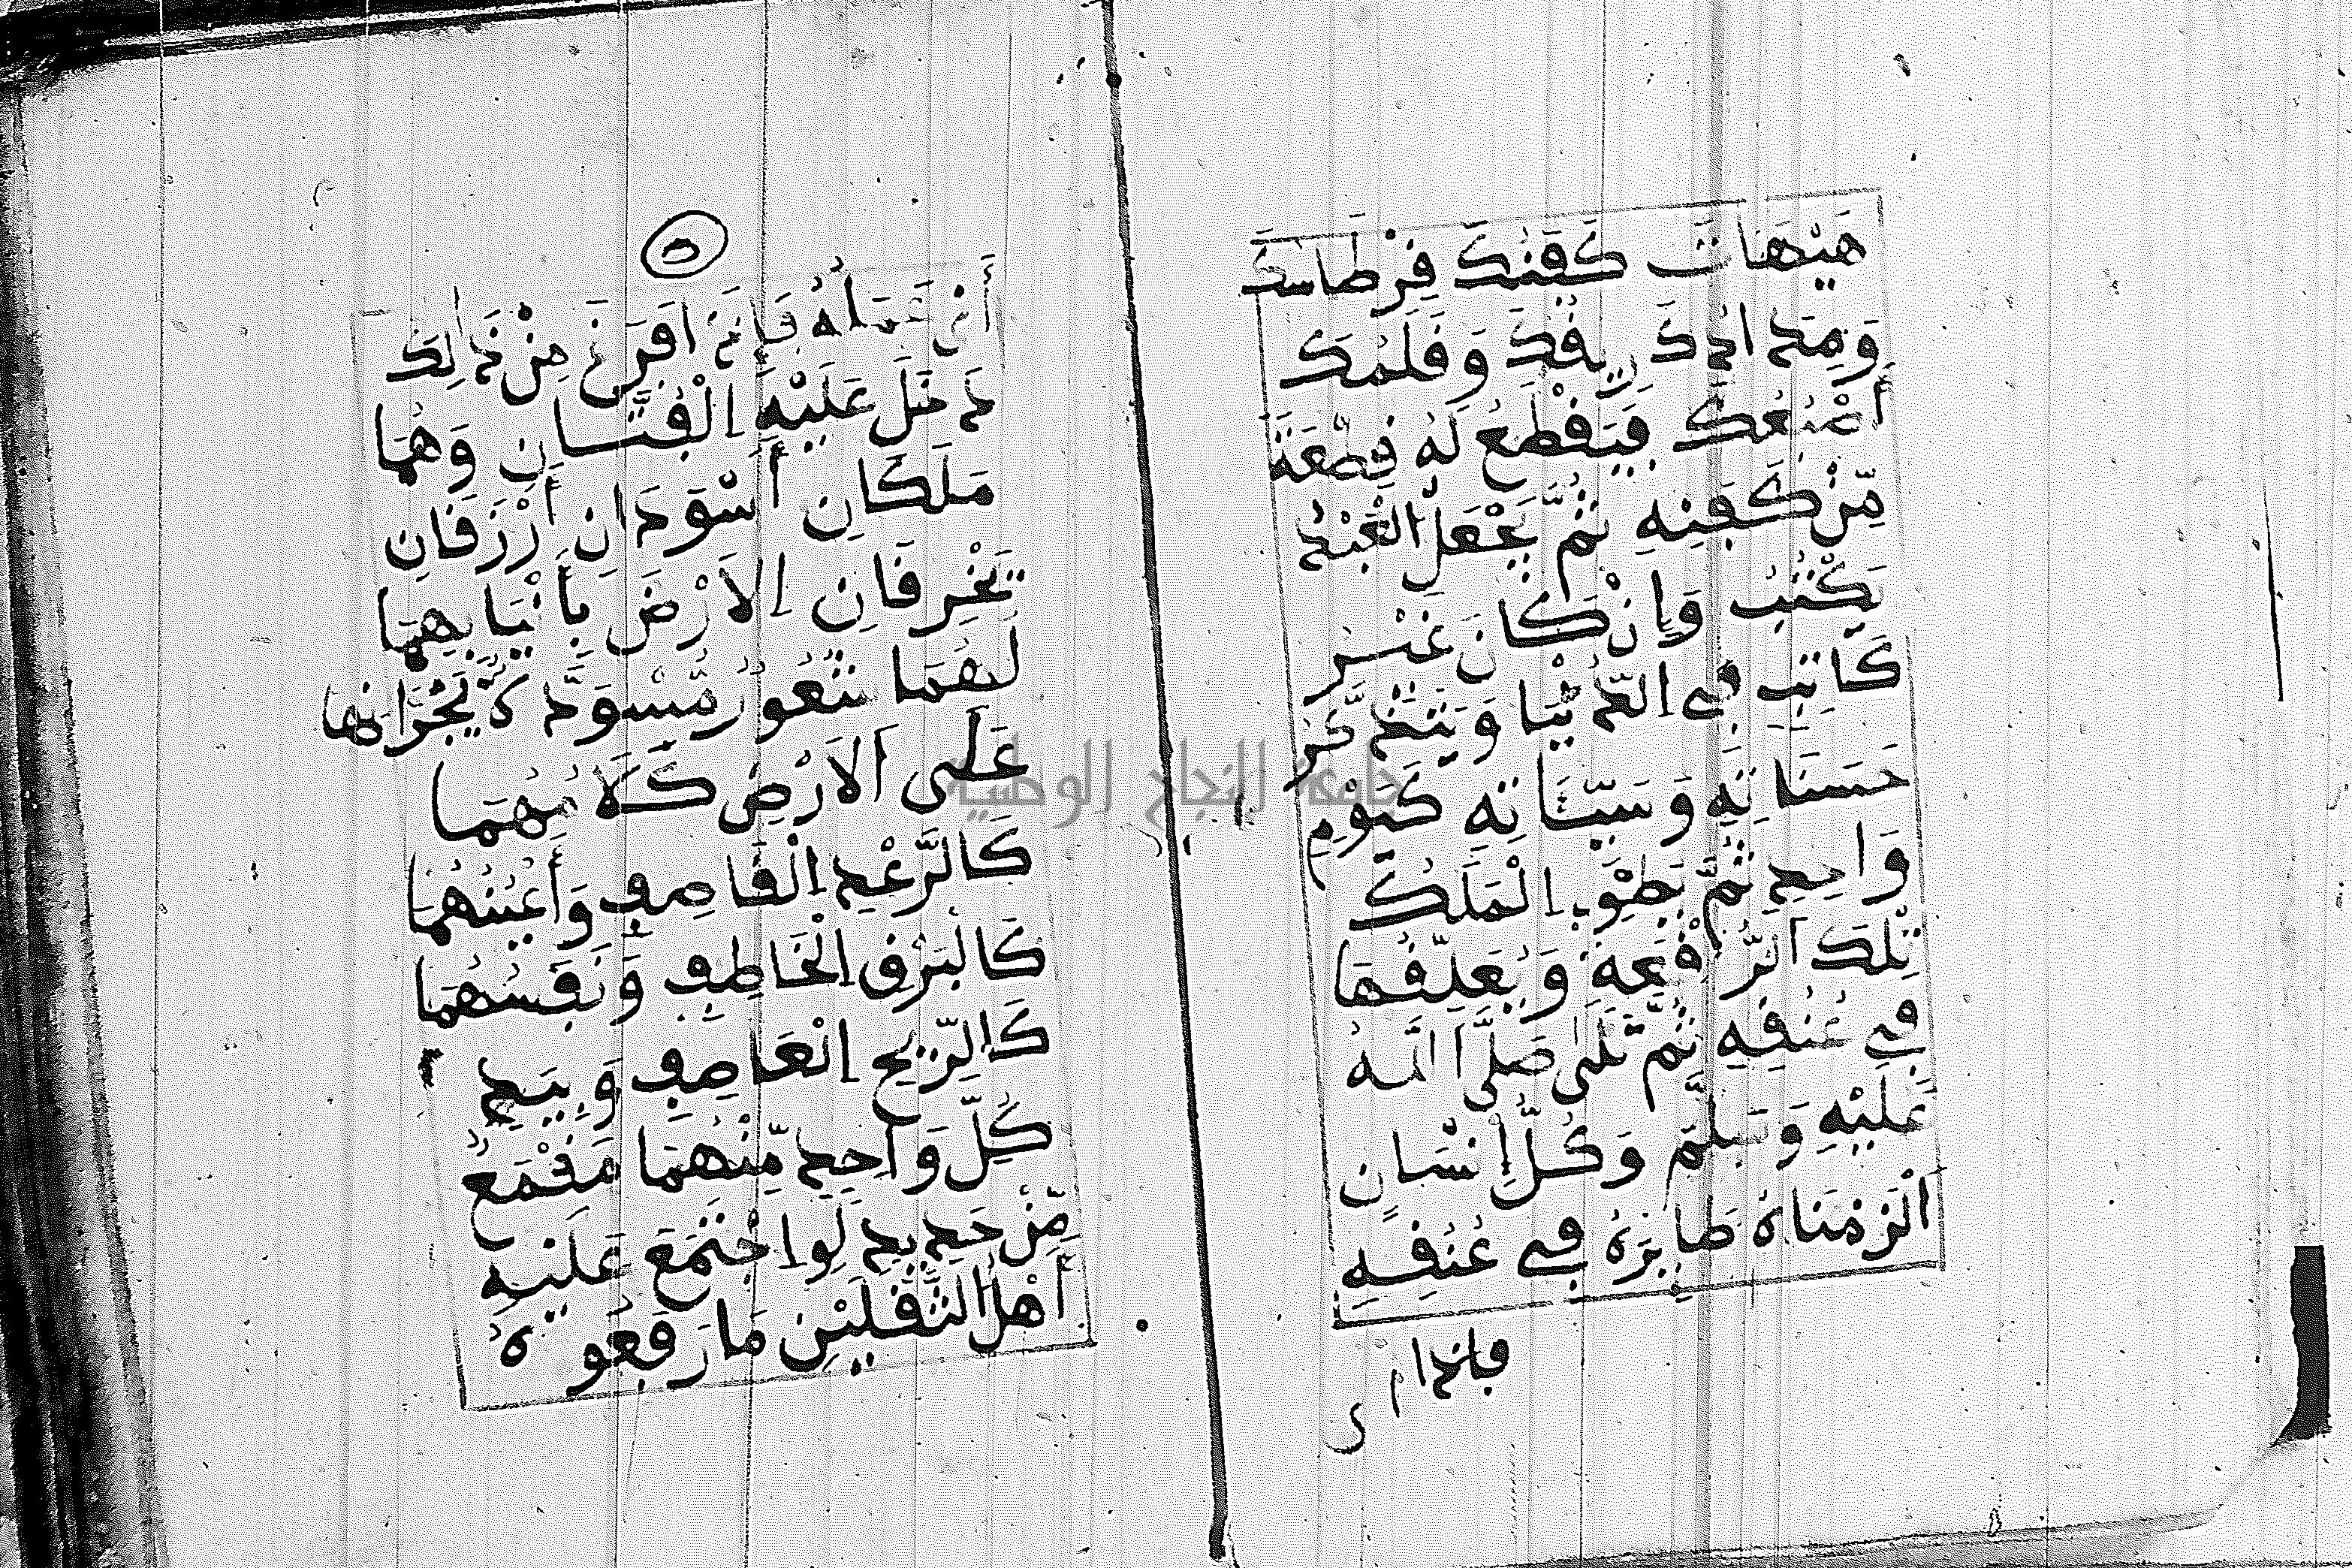 هَيْهَات كَفَنُكَ قِرْطَاسُكَ
وَمِدَادُكَ رِيقُكَ وَقَلَمُكَ
أَصْبُعُكَ فَيَقْطَعُ لَهُ قِطْعَةً
مِّنْ كَفَنِهِ ثُمَّ يَجْعَلُ الْعَبْدُ
يَكْتُبُ وَإِنْ كَانَ غَيْرَ
كَاتِبٍ فِي الدُّنْيَا وَيَتَذَكَّرُ
حَسَنَاتِهِ وَسَيِّئَاتِهِ كَيَوْمٍ
وَاحِدٍ ثُمَّ يَطْوِ الْمَلَكُ
تِلْكَ الرُّقْعَة وَيُعَلِّقُهَا
فِي عُنُقِهِ ثُمَّ تَلَى صَلَّى اللهُ
عَلَيْهِ وَسَلَّمَ وَكُلَّ إِنْسَانٍ
أَلْزَمْنَاهُ طَايِرَهُ فِي عُنُقِهِ
فإذا
٥
فَرَغَ مِنْ ذَالِكَ
دَخَلَ عَلَيْهِ الْفُتَّانِ وَهُمَا
مَلَكَانِ أَسْوَدَانِ أَزْرَقَانِ
يَخْرِقَانِ الاَرْضَ بِأَنْيَابِهِمَا
لَهُمَا شُعُورٌ مُّسْوَدَّةٌ يَجُرَّانِهَا
عَلَى الاَرْضِ كَلَامُهُمَا
كَالرَّعْدِ الْقَاصِفِ وَأَعْيُنُهُمَا
كَالْبَرْقِ الْخَاطِفِ وَنَفَسُهُمَا
كَالرِّيحِ الْعَاصِفِ وَبِيَدِ
كُلِّ وَاحِدٍ مِّنْهُمَا مَقْمَعٌ
مِّنْ حَدِيدٍ لَوِ اجْتَمَعَ عَلَيْهِ
أَهْلُ الثَّقَلَيْنِ مَا رَفَعُوهُ